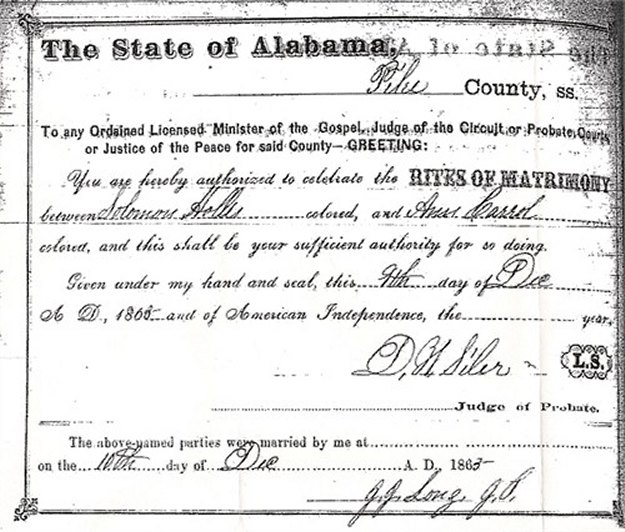 The State of Alabama,
Pike County, ss.
To any Ordained Licensed Minister of the Gospel, Judge of the Circuit or Probate Courts
or Justice of the Peace for said County—GREETING:
You are hereby authorized to celebrate the RITES OF MATRIMONY
between Solomon colored, and Ann Carrol
colored, and this shall be your sufficient authority for so doing.
Given under my hand and seal, this 9th day of Dec
A D., 1865 and of American Independence, the year.
D. N. Siler L.S.
Judge of Probate.
The above-named parties were married by me at
on the 10th day of Dec A. D, 1865
J. J. Long, J. P.